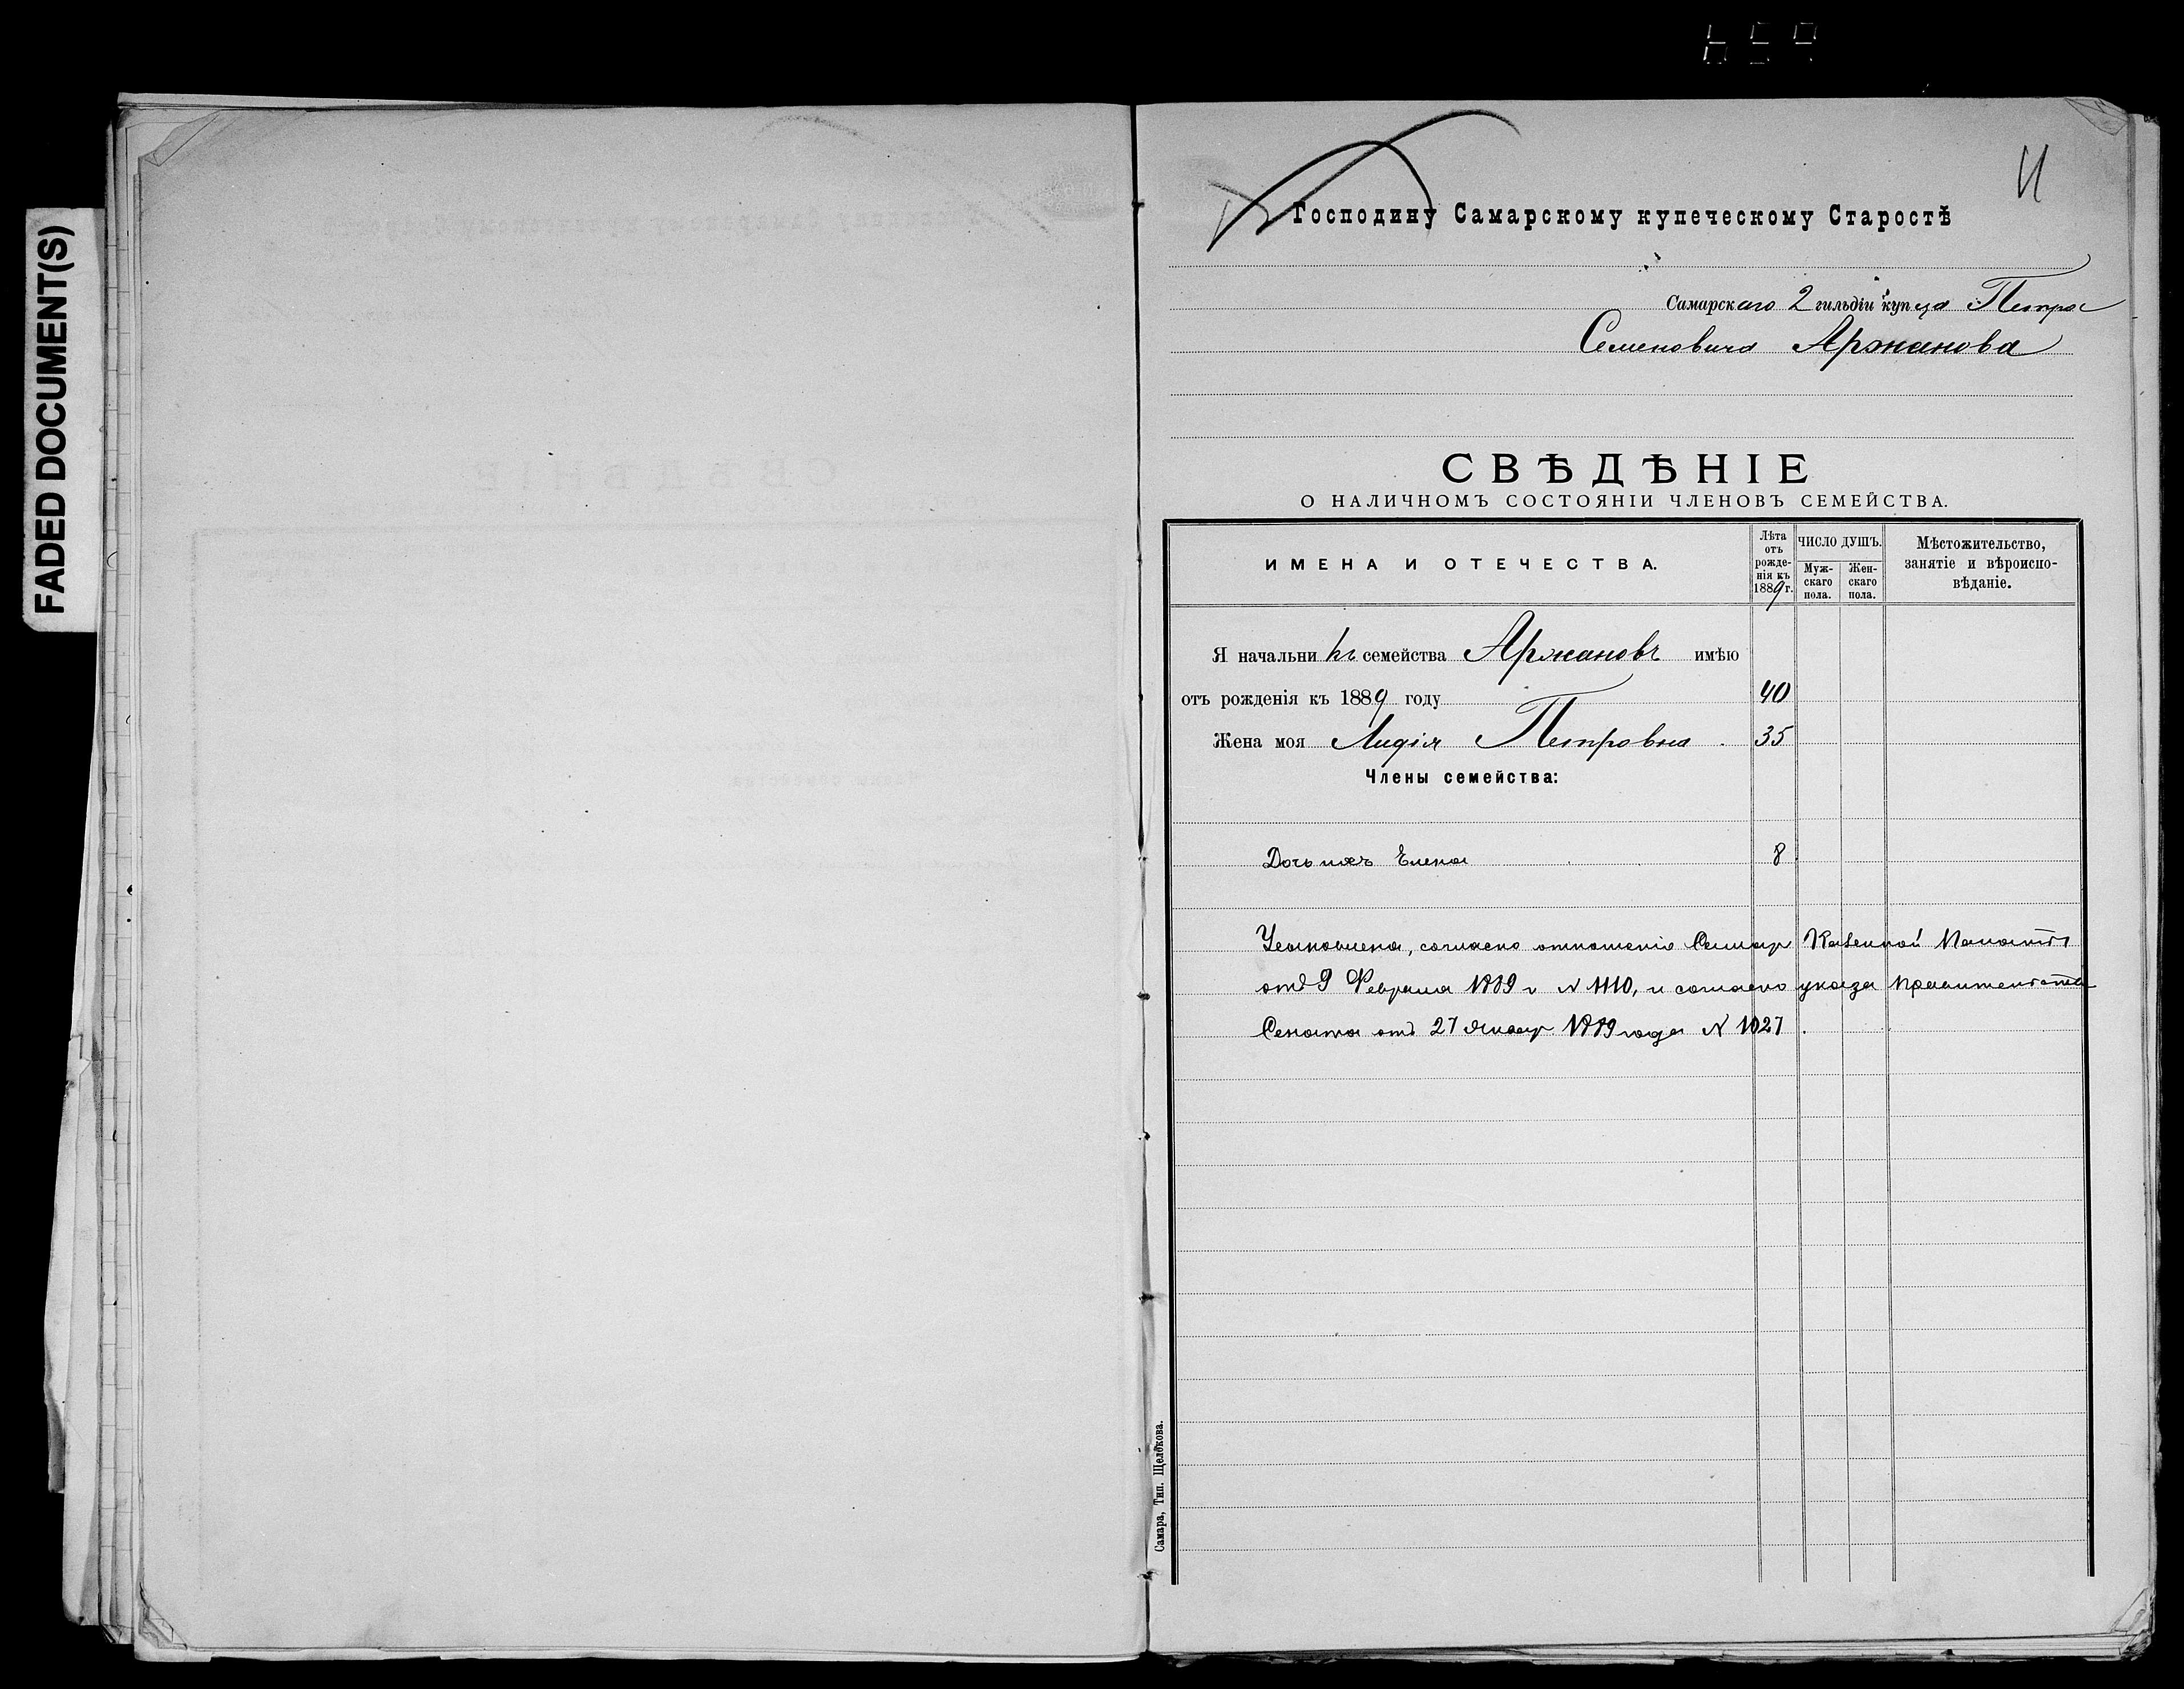 FADED DOCUMENT(S)
659
11
Господину Самарскому купеческому Старостѣ
Самарскаго 2 гильдіи купца Петра
Семеновича Аржанова
СВѢДѢНІЕ
О НАЛИЧНОМЪ СОСТОЯНІИ ЧЛЕНОВЪ СЕМЕЙСТВА.
ИМЕНА И ОТЕЧЕСТВА.
Лѣта отъ рожденія къ 1889 г.
ЧИСЛО ДУШЪ.
Мужскаго пола.
Женскаго пола.
Мѣстожительство, занятіе и вѣроисповѣданіе.
Я начальникъ семейства Аржановъ имѣю
отъ рожденія къ 1889 году 40
Жена моя Лидія Петровна 35
Члены семейства:
Дочь ихъ Елена 8
Усыновлена, согласно отношенія Самар Казенной Палаты
отъ 9 Февраля 1889 г N 1110, и согласно указа Правительств
Сената отъ 27 Январ 1889 года N 1027
Самара, Тип. Щелокова.